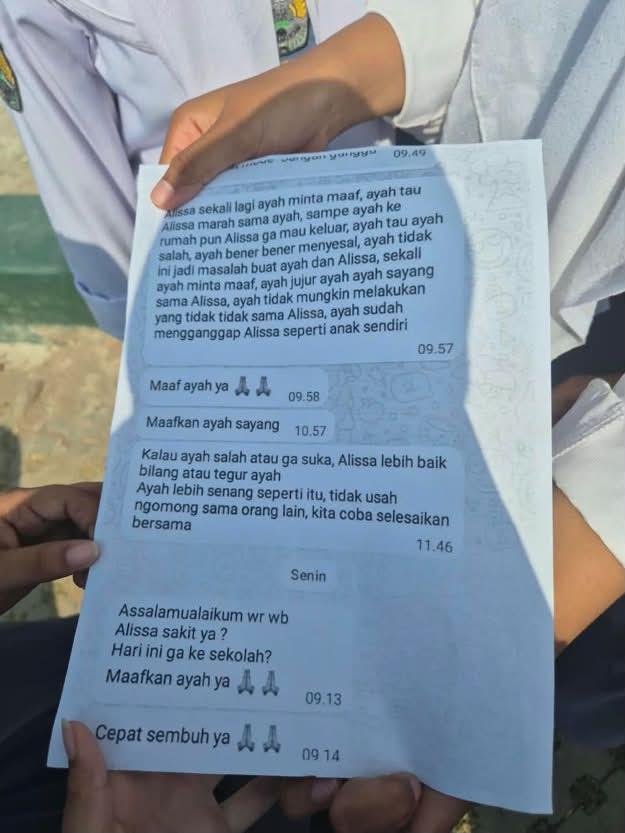 jangan ganggu 09.49
Alissa sekali lagi ayah minta maaf, ayah tau
Alissa marah sama ayah, sampe ayah ke
rumah pun Alissa ga mau keluar, ayah tau ayah
salah, ayah bener bener menyesal, ayah tidak
ini jadi masalah buat ayah dan Alissa, sekali
ayah minta maaf, ayah jujur ayah ayah sayang
sama Alissa, ayah tidak mungkin melakukan
yang tidak tidak sama Alissa, ayah sudah
mengganggap Alissa seperti anak sendiri
09.57
Maaf ayah ya 🙏🙏 09.58
Maafkan ayah sayang 10.57
Kalau ayah salah atau ga suka, Alissa lebih baik
bilang atau tegur ayah
Ayah lebih senang seperti itu, tidak usah
ngomong sama orang lain, kita coba selesaikan
bersama
11.46
Senin
Assalamualaikum wr wb
Alissa sakit ya ?
Hari ini ga ke sekolah?
Maafkan ayah ya 🙏🙏
09.13
Cepat sembuh ya 🙏🙏
09 14